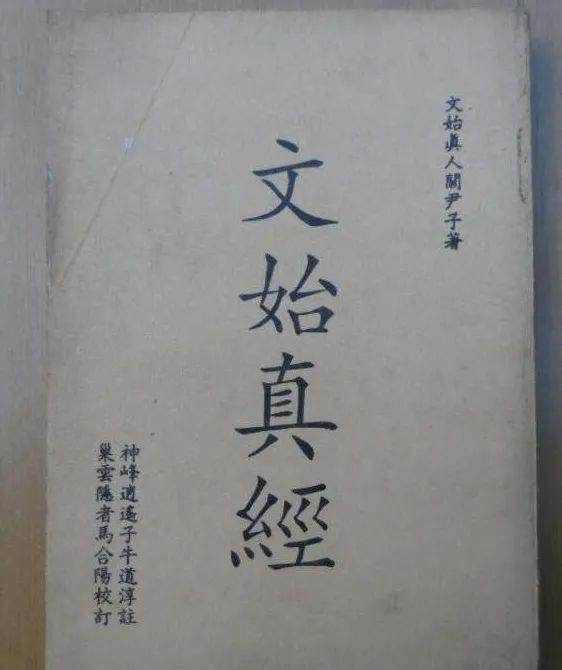 文始眞人關尹子著
文始真經
神峰逍遙子牛道淳註
巢雲隱者馬合陽校訂